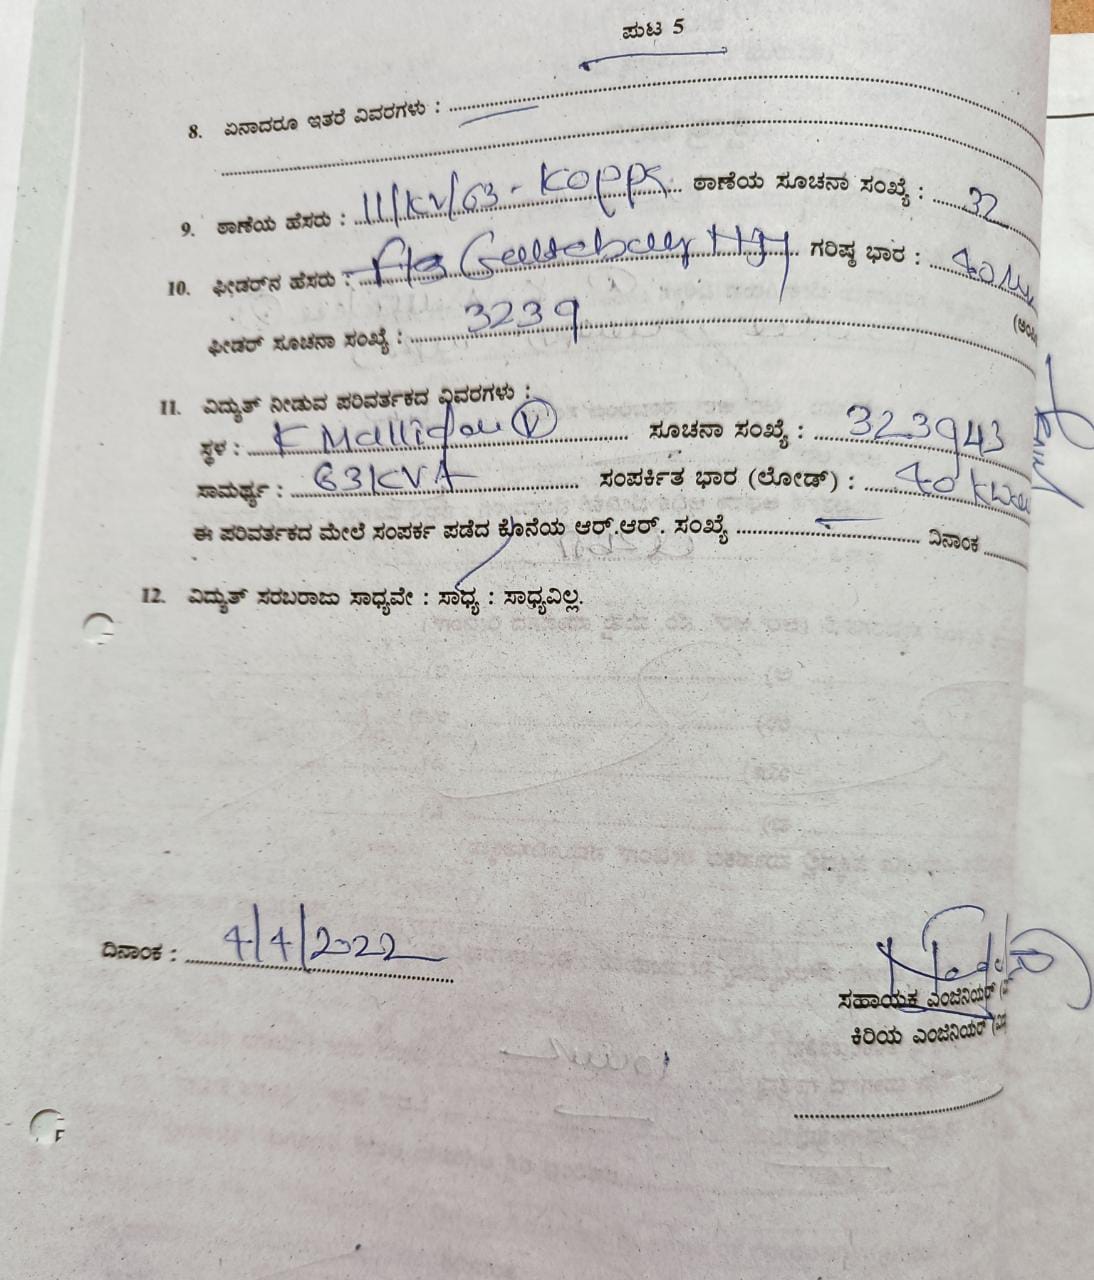 ಪುಟ 5
8. ಏನಾದರೂ ಇತರೆ ವಿವರಗಳು :
9. ಠಾಣೆಯ ಹೆಸರು : 11/KV/63 - Koppa ಠಾಣೆಯ ಸೂಚನಾ ಸಂಖ್ಯೆ : 32
10. ಫೀಡರ್‌ನ ಹೆಸರು : ಗರಿಷ್ಠ ಭಾರ : 40
ಫೀಡರ್ ಸೂಚನಾ ಸಂಖ್ಯೆ : 3239
11. ವಿದ್ಯುತ್ ನೀಡುವ ಪರಿವರ್ತಕದ ವಿವರಗಳು :
ಸ್ಥಳ : K Malligau (V) ಸೂಚನಾ ಸಂಖ್ಯೆ : 323943
ಸಾಮರ್ಥ್ಯ : 63 KVA ಸಂಪರ್ಕಿತ ಭಾರ (ಲೋಡ್) : 40
ಈ ಪರಿವರ್ತಕದ ಮೇಲೆ ಸಂಪರ್ಕ ಪಡೆದ ಕೊನೆಯ ಆರ್.ಆರ್. ಸಂಖ್ಯೆ ದಿನಾಂಕ
12. ವಿದ್ಯುತ್ ಸರಬರಾಜು ಸಾಧ್ಯವೇ : ಸಾಧ್ಯ : ಸಾಧ್ಯವಿಲ್ಲ.
ದಿನಾಂಕ : 4/4/2022
ಸಹಾಯಕ ಎಂಜಿನಿಯರ್
ಕಿರಿಯ ಎಂಜಿನಿಯರ್